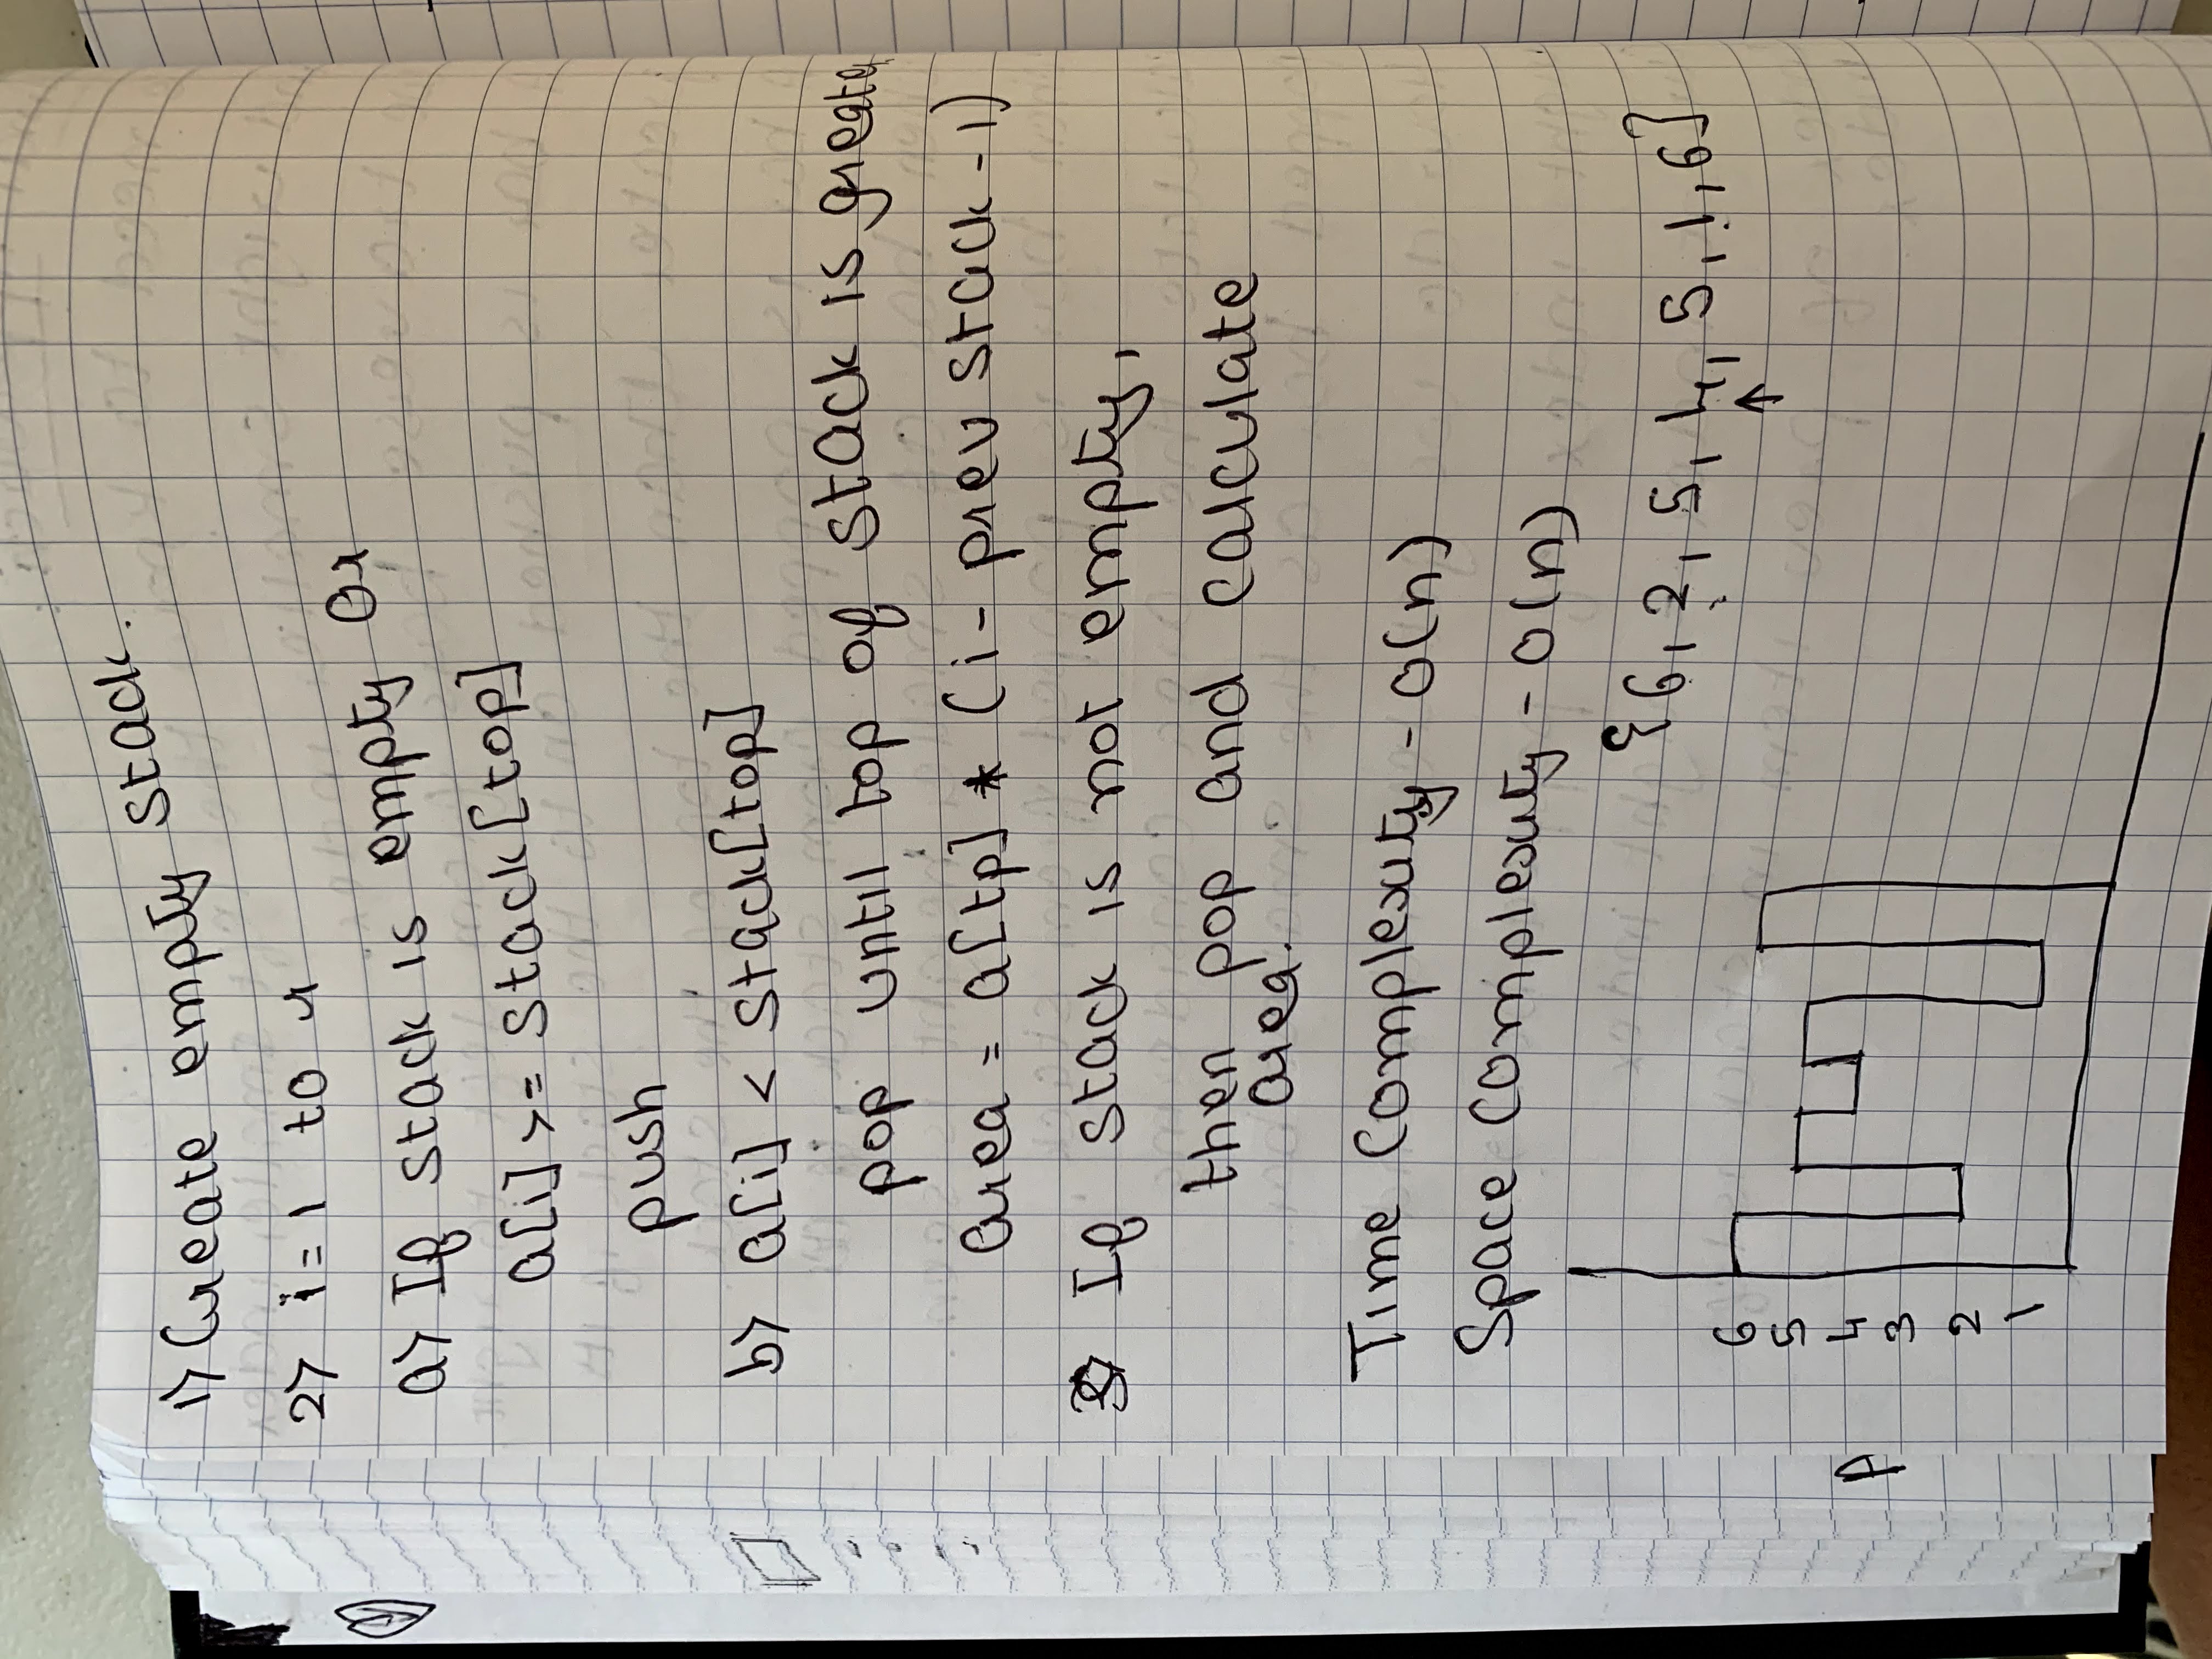 1) Create empty stack.
2) i = 1 to n
a) If stack is empty or
a[i] >= stack[top]
push
b) a[i] < stack[top]
pop until top of stack is greater
area = a[tp] * (i - prev stack - 1)
3) If stack is not empty,
then pop and calculate
area.
Time complexity - O(n)
Space complexity - O(n)
{6, 2, 5, 4, 5, 1, 6}
6
5
4
3
2
1